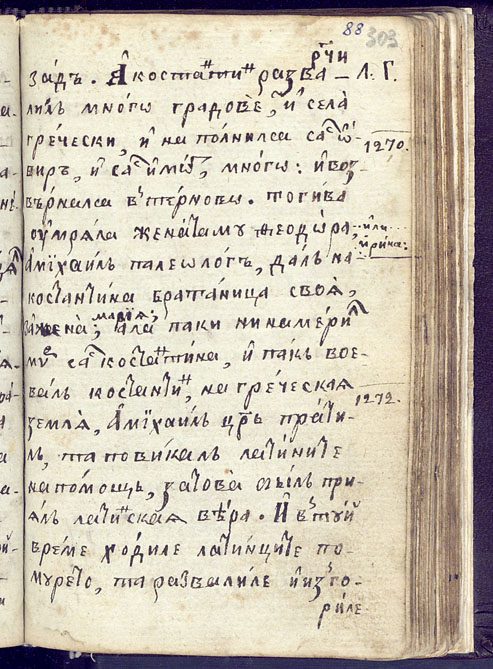 88 303
задъ. А҆ костаⷩ҇тиⷩ҇ разва—
рчи
Л. Г.
лилъ многѡ градове, и҆ села
гречески, и҆ на полнилса саⷭ҇ ѡ҆—
1270.
виръ, и҆ саⷭ҇ имѡⷮ, многѡ: и҆ воз
върналса въ търновѡ. Тогива
ѹмряла женатаму ѳеодѡра,
или
ирина:
Амїхаилъ палеологъ, далъ на
костантина братаница своя,
марїя;
зажена, ала паки нинамери
муⷭ҇ саⷭ҇ костаⷩ҇тина, и҆ пакъ вое—
валъ костантиⷩ҇, на греческая
земля, Амїхаилъ цр҃ъ прати—
1272.
лъ, та повикалъ латините
напомощь, затова ѡбылъ при—
ялъ латиⷩ҇ская вѣра. И҆ въ туй
време ходиле латинците по—
мурето, та развалиле и҆изго—
риле